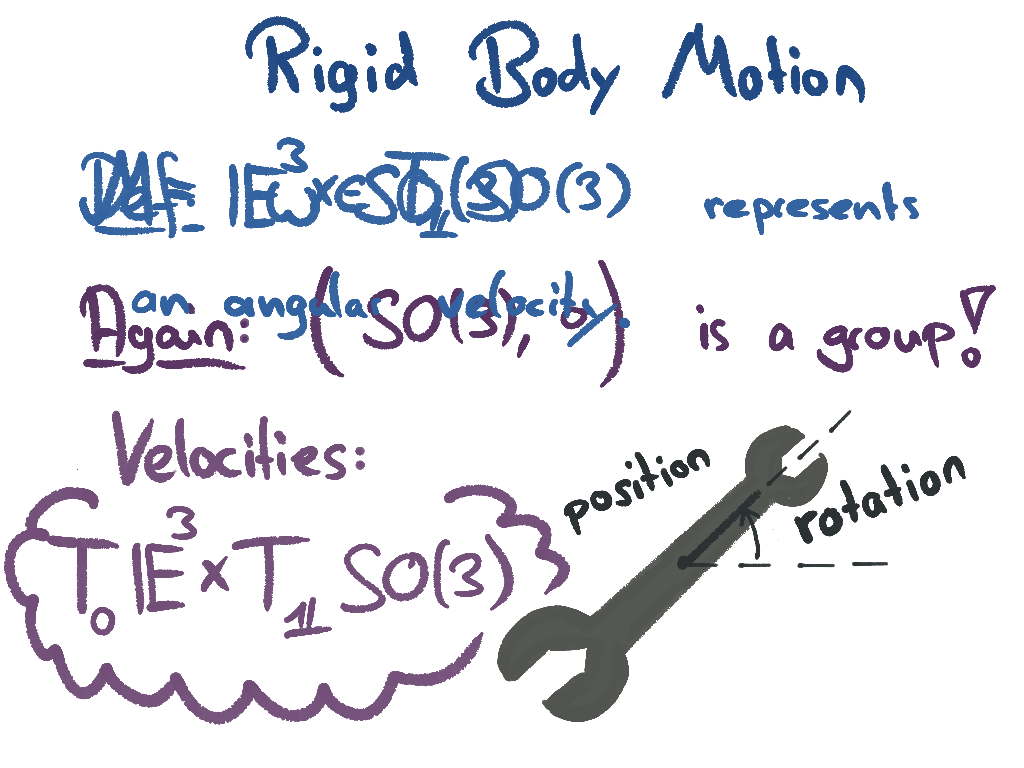 Rigid Body Motion
𝔼³ × SO(3)
ω ∈ T_𝟙 SO(3) represents
an angular velocity.
Again: (SO(3), ∘) is a group!
Velocities:
T₀ 𝔼³ × T_𝟙 SO(3)
position
rotation